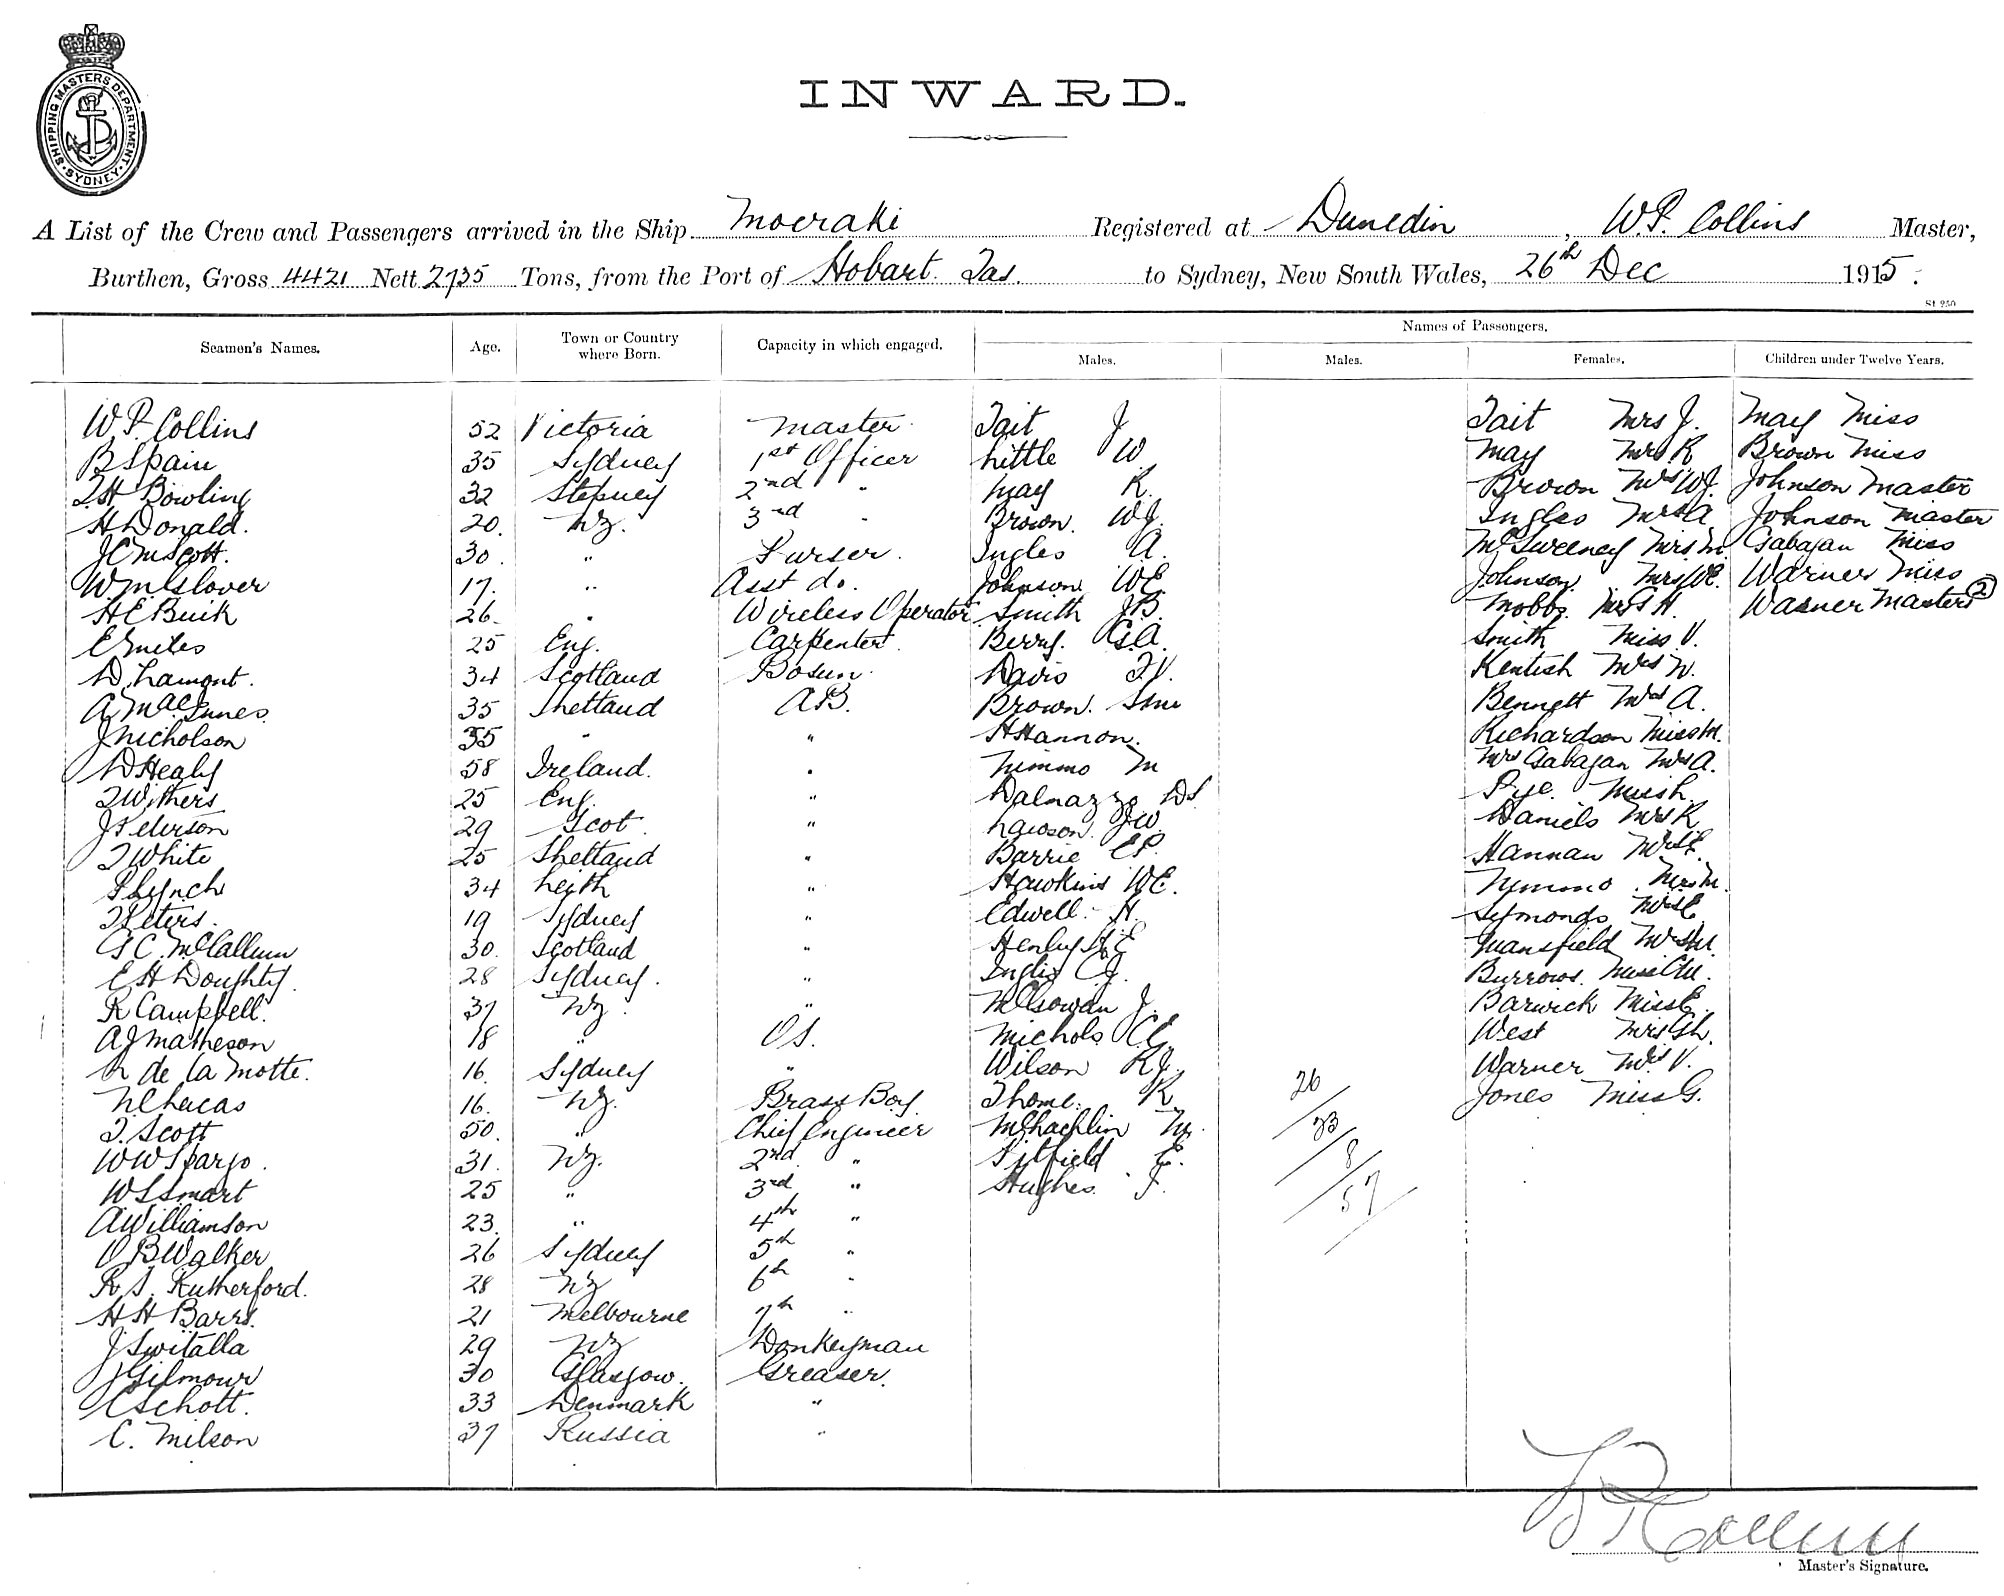 SHIPPING MASTERS DEPARTMENT. SYDNEY
INWARD.
A List of the Crew and Passengers arrived in the Ship Moeraki Registered at Dunedin, W.P. Collins Master,
Burthen, Gross 4421 Nett 2735 Tons, from the Port of Hobart. Tas. to Sydney, New South Wales, 26th Dec 1915.
St 250
Names of Passengers.
Seamen's Names. Age. Town or Country where Born. Capacity in which engaged. Males. Males. Females. Children under Twelve Years.
W P. Collins 52 Victoria Master Tait J Tait Mrs J. May Miss
B Spain 35 Sydney 1st Officer Little W May Mrs R Brown Miss
T H Bowling 32 Stepney 2nd " May R. Brown Mrs WJ. Johnson Master
H Donald. 20. NZ. 3rd " Brown. WJ. Ingles Mrs A Johnson Master
J C M Scott. 30. " Purser. Ingles A. McSweeney Mrs M. Gabagan Miss
W McGlover 17. " Asst do. Johnson WE. Johnson Mrs WE. Warner Miss
H E Buik 26. " Wireless Operator Smith JB. Mobbs Mrs H. Warner Masters (2)
E Miles 25 Eng. Carpenter. Berry. GA. Smith Miss V.
D. Lamont. 34 Scotland Bosun. Davis TV. Kentish Mrs W.
A MacInnes 35 Shetland A.B. Brown. Bennett Mrs A.
J Nicholson 35 " " H Hannon. Richardson Miss M.
D Healy 58 Ireland. " Nimmo M Mrs Gabagan Mrs A.
T Withers 25 Eng. " Dalmazzo Pye. Miss L.
J Peterson 29 Scot. " Lawson. JW. Daniels Mrs R
T White 25 Shetland " Barrie EP. Hannan Mrs E.
P Lynch 34 Leith " Hawkins WE. Nimmo. Mrs M.
T Peters. 19 Sydney " Edwell. H. Symonds Mrs E
G C. McCallum 30. Scotland " Henley H.E Mansfield Mrs M.
E H Doughty. 28 Sydney. " Inglis CJ. Burrows. Miss CM.
R Campbell. 37 NZ. " McGowan J. Barwick Miss E.
A J Matheson 18 " O.S. Nichols CE West Mrs GL.
L de la Motte. 16. Sydney " Wilson RJ. Warner Mrs V.
N C Lucas 16. NZ. Brass Boy. Thome. R. Jones Miss G.
T. Scott 50. " Chief Engineer McLachlin
W W Spargo. 31. NZ. 2nd " Pitfield E.
W S Smart 25 " 3rd " Hughes. J.
A Williamson 23. " 4th "
O B Walker 26 Sydney 5th "
R S. Rutherford. 28 NZ 6th "
H H Barrs. 21 Melbourne 7th "
J Switalla 29 NZ Donkeyman
J Gilmour 30 Glasgow. Greaser.
C Schott. 33 Denmark "
C. Milson 37 Russia "
26
23
8
57
W P Collins
Master's Signature.